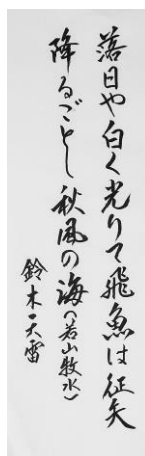 落日や白く光りて飛魚は征矢
降るごとし秋風の海(若山牧水)
鈴木天雷